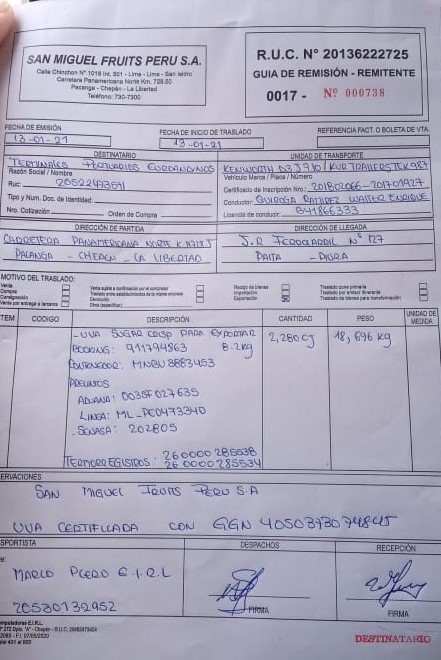 SAN MIGUEL FRUITS PERU S.A.
Calle Chinchon N° 1018 Int. 801 - Lima - Lima - San Isidro
Carretera Panamericana Norte Km. 728.50
Pacanga - Chepén - La Libertad
Teléfono: 730-7300
R.U.C. N° 20136222725
GUIA DE REMISIÓN - REMITENTE
0017 - N° 000738
FECHA DE EMISIÓN
13-01-21
FECHA DE INICIO DE TRASLADO
13-01-21
REFERENCIA FACT. O BOLETA DE VTA.
DESTINATARIO
TERMINALES PORTUARIOS EUROANDINOS
Razón Social / Nombre
Ruc:
Tipo y Num. Doc. de Identidad:
Nro. Cotización Orden de Compra
UNIDAD DE TRANSPORTE
KENWORTH
Vehículo Marca / Placa / Número
Certificado de Inscripción Nro.: 201802066 - 201701927
Conductor: QUIROGA RAMIREZ WALTER ENRIQUE
Licencia de conducir: B41866333
DIRECCIÓN DE PARTIDA
CARRETERA PANAMERICANA NORTE
PACANGA - CHEPEN - LA LIBERTAD
DIRECCIÓN DE LLEGADA
J.R FERROCARRIL N° 127
PAITA - PIURA
MOTIVO DEL TRASLADO:
Venta
Compra
Consignación
Venta por entrega a terceros
Venta sujeta a confirmación por el comprador
Traslado entre establecimientos de la misma empresa
Devolución
Otros (especificar)
Recojo de bienes
Importación
Exportación
Traslado zona primaria
Traslado por emisor itinerante
Traslado de bienes para transformación
TEM CODIGO DESCRIPCIÓN CANTIDAD PESO UNIDAD DE MEDIDA
- UVA SUGAR CRISP PARA EXPORTAR 2,280 CJ 18,696 KG
BOOKING: 911794863 8.2kg
CONTENEDOR: MNBU 3883453
PRECINTOS
ADUANA: 0035F027635
LINEA: ML-PE0473340
- SENASA: 202805
TERMORREGISTROS: 260000285538
260000285534
ERVACIONES
SAN MIGUEL FRUITS PERU S.A
UVA CERTIFICADA CON GGN 4050373074845
SPORTISTA
MARCO PIERO E.I.R.L
20530132952
DESPACHOS
FIRMA
RECEPCIÓN
FIRMA
DESTINATARIO